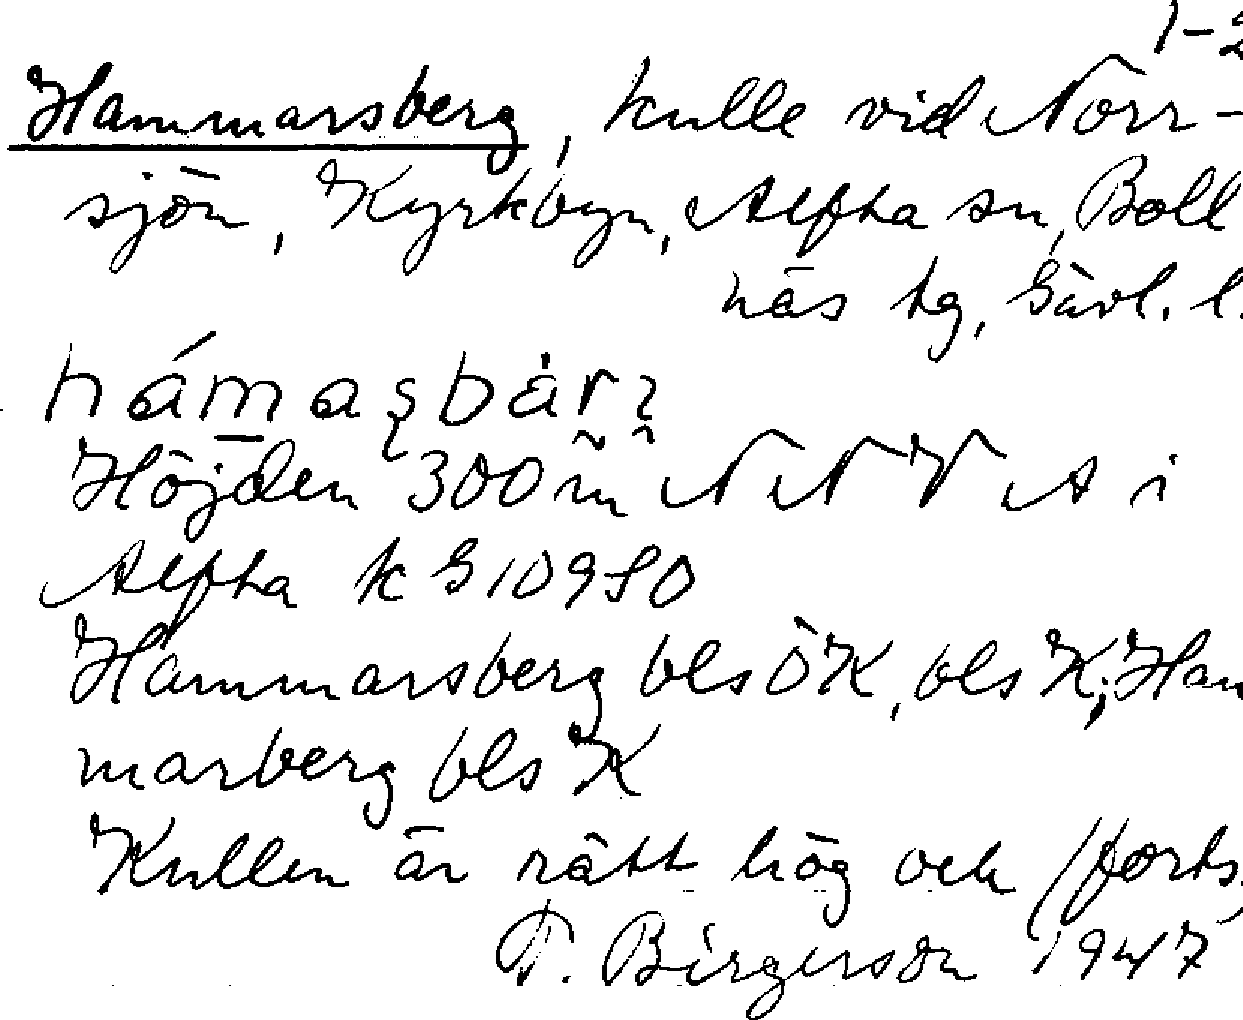 1-2
Hammarsberg, kulle vid Norr-
sjön, Kyrkbyn, Alfta sn, Boll
näs tg, Gävl. l.
Höjden 300 m NNV A i
Alfta k G 10980
Hammarsberg bls ÖK, bls K; Ham
marberg bls K
Kullen är rätt hög och (forts.
Birgerson 1947